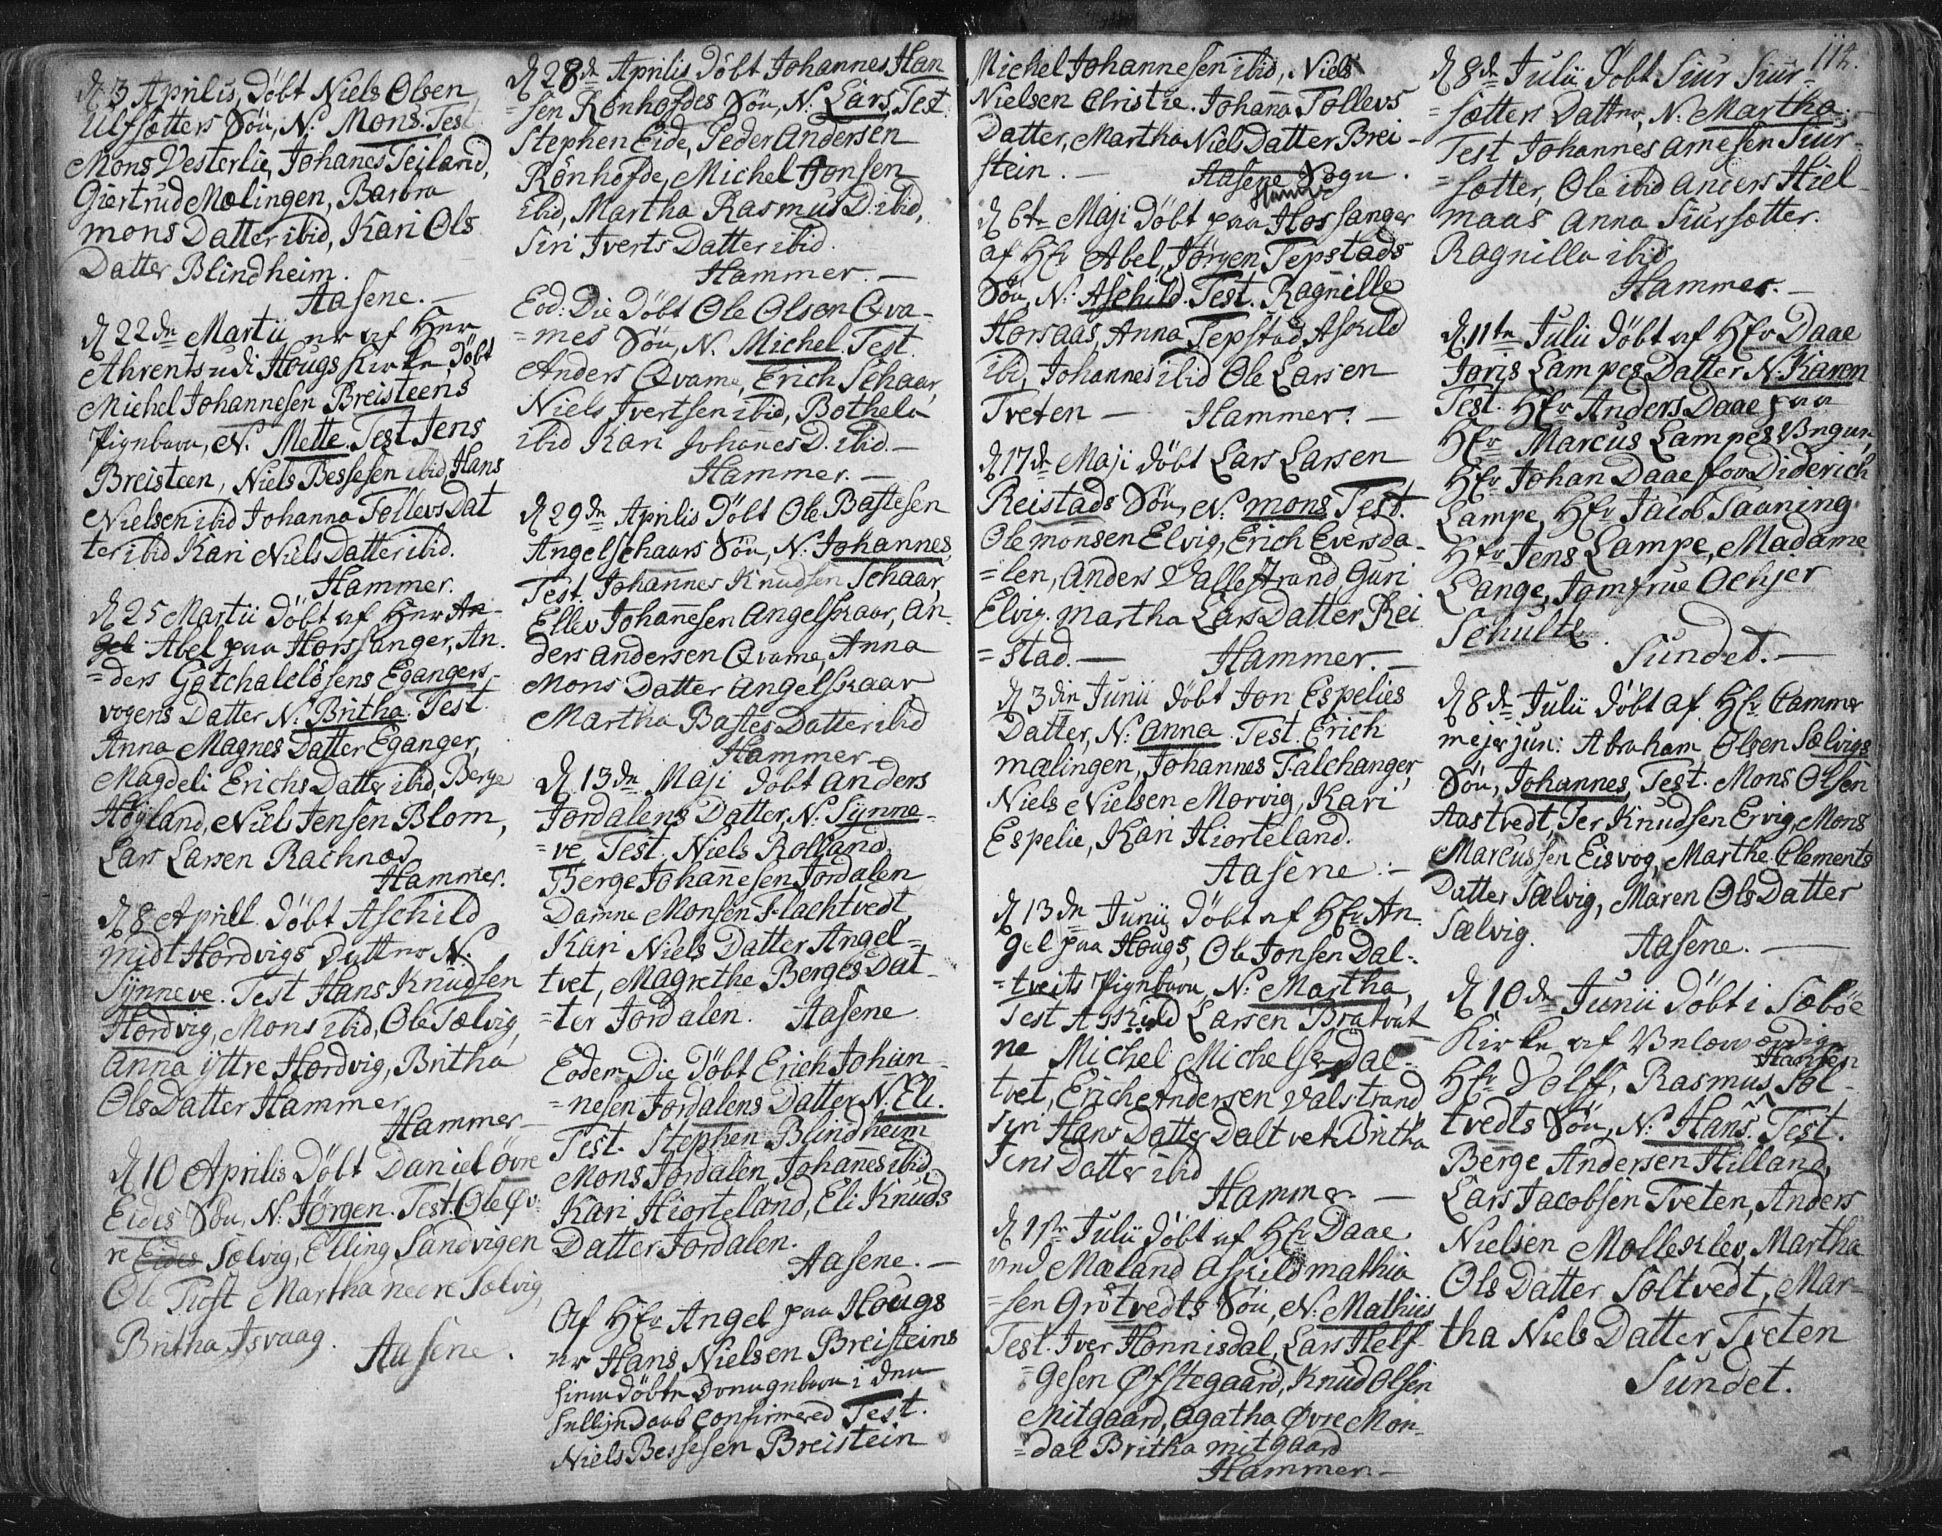 D. 3 Aprilis, Döbt Niels Olsen
Ulfsætters Sön, N: Mons. Test
Mons Vesterlie, Johanes Teiland,
Giertrud Mælingen, Barbra
Mons Datter ibid, Kari Ols
Datter Blindheim.
Aasene. —
D. 22de Martii er af Herr
Ahrents udi Hougs Kirke Döbt
Michel Johannesen Breisteens
Pigebarn, N. Mette. Test Jens
Breisteen, Niels Bessesen ibid, Hans
Nielsen ibid Johanna Tollevs Dat
ter ibid Kari Niels Datter ibid.
Hammer.
D. 25 Martii Döbt af Herr An-
gel Abel paa Horssanger, An-
=ders Gotchalclösens Eganger,
vogens Datter N: Britha. Test.
Anna Magnes Datter Eganger,
Magdeli Erichs Datter ibid, Berge
Höyland, Niels Jensen Blom,
Lars Larsen Rachnæs
Hammer.
D. 8 Aprill Döbt Aschild
midt Hordvigs Datter N.
Synneve. Test Hans Knudsen
Hordvig, Mons ibid, Ole Sælvig,
Anna ÿttre Hordvig, Britha
Ols Datter Hammer
Hammer —
D. 10 Aprilis Döbt Daniel Övre
Eides Sön, N: Jörgen. Test: Ole Öv:
re Eides Sælvig, Elling Sandvigen
Ole Toft Martha nedre Sælvig,
Britha Isvaag.
Aasene.
D. 28de Aprilis Döbt Johannes Han
=sen Rönhofdes Sön, N: Lars, Test.
Stephen Eide, Peder Andersen
Rönhofde, Michel Jonsen
ibid, Martha Rasmus D: ibid,
Siri Iverts Datter ibid.
Hammer. —
Eod: Die Döbt Ole Olsen Qva-
=mes Sön, N. Michel. Test
Anders Qvame, Erich Schaar,
Niels Ivertsen ibid, Bothela
ibid Kari Johanes D. ibid. —
Hammer. —
D. 29de Aprilis Döbt Ole Bastesen
Angelschaars Sön, N: Johannes,
Test. Johannes Knudsen Schaar,
Ellev Johannesen Angelskaar, An-
ders Andersen Qvame, Anna
Mons Datter Angelskaar
Martha Bastes Datter ibid
Hammer —
D. 13de Maji Döbt Anders
Jordalens Datter, N: Synne-
=ve, Test. Niels Rolland,
Berge Johanesen Jordalen
Damne Monsen Flachtvedt,
Kari Niels Datter Angel-
tvet, Magrethe Berges Dat-
=ter Jordalen. Aasene
Eodem Die Döbt Erich Johan-
=nesen Jordalens Datter N. Eli.
Test. Stephen Blindheim
Mons Jordalen, Johanes ibid,
Kari Hiorteland, Eli Knuds
Datter Jordalen.
Aasene. —
Af Hr Angel paa Hougs
er Hans Nielsen Breisteins
hiemdöbte Drengebarn i den
hellig Daab confirmered Test.
Niels Bessesen Breistein
Michel Johannesen ibid, Niels
Nielsen Christie. Johanna Tollevs
Datter, Martha Niels Datter Brei-
stein. — Aasene Sogn.
Hammer
D. 6te Maji Döbt paa Horssanger
af Hr Abel, Jörgen Tepstads
Sön, N: Aschild. Test. Ragnille
Horsaas, Anna Tepstad Askild
ibid, Johannes ibid Ole Larsen
Tveten — Hammer. —
D. 17de Maji Döbt Lars Larsen
Reistads Sön, N: Mons Test.
Ole Monsen Elvig, Erich Eversda-
=len, Anders Vallestrand Guri
Elvig. Martha Lars Datter Rei
=stad. — Hammer. —
D. 3die Junii Döbt Jon Espelies
Datter, N: Anna. Test. Erich
Mælingen, Johannes Talchanger,
Niels Nielsen Morvig, Kari
Espelie, Kari Hiorteland.
Aasene. —
D. 13de Junij Döbt af Hr An-
gel paa Hougs, Ole Jonsen Dal-
=tveits Pigebarn, N: Martha,
Test Askild Larsen Bratvat
ne Michel Michelse Dal-
tvet, Erich Andersen Valstrand,
Siri Hans Datter Daltvet Britha
Jens Datter ibid
Hammer. —
D. 1ste Julii Döbt af Hr Daae
ved Mæland Askild Mathia
=sen Grötvedts Sön, N: Mathies
Test. Iver Honnisdal, Lars Helf-
=gesen Öfstegaard, Knud Olsen
Mitgaard, Agatha Övre Mon-
=dal Britha Mitgaard
Hammer. —
114.
D. 8de Julii Döbt Siur Siur-
=sætters Datter, N: Martha.
Test Johannes Arnesen Siur-
=sætter, Ole ibid Anders Hiel-
maas Anna Siursætter.
Ragnilla ibid
Hammer. —
D. 11te Julii Döbt af Hr Daae
Joris Lampes Datter N: Karen
Test. Hr Anders Daae paa
Hr Marcus Lampes Vegne,
Hr Johan Daae for Diderich
Lampe, Hr Jacob Saaning
Hr Jens Lampe, Madame
Lange, Jomfrue Ochser
Schultz.
Sundet. —
D. 8de Julii Döbt af Hr Cammer
mejer jun: Abraham Olsen Sælvigs
Sön, Johannes, Test. Mons Olsen
Aastvedt, Per Knudsen Ervig, Mons
Marcussen Eisvog, Marthe Clements
Datter Sælvig, Maren Ols Datter
Sælvig.
Aasene. —
D. 10de Junii Döbt i Sæböe
Kirke af Velærværdige
Hansen
Hr Dolff, Rasmus Sol-
tvedts Sön, N: Hans. Test.
Berge Andersen Hilland,
Lars Jacobsen Tveten, Anders
Nielsen Mollekley, Martha
Ols Datter Soltvedt, Mar-
tha Niels Datter Tveten
Sundet.